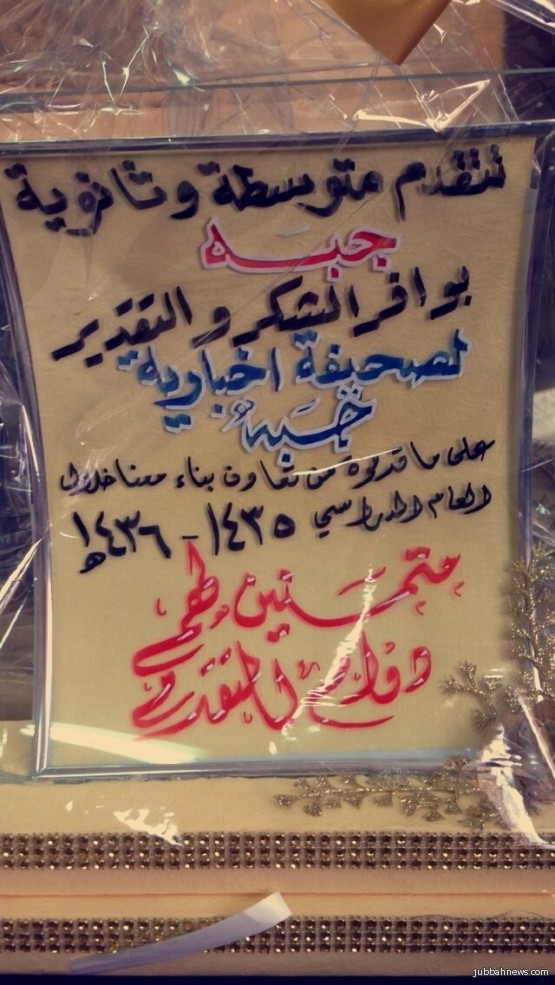 تتقدم متوسطة وثانوية
جبه
بوافر الشكر والتقدير
لصحيفة اخبارية
جُبَه
على ما قدموه من تعاون بناء معنا خلال
العام الدراسي ١٤٣٥ - ١٤٣٦هـ
متمنين لهم
دوام التقدم
jubbahnews.com